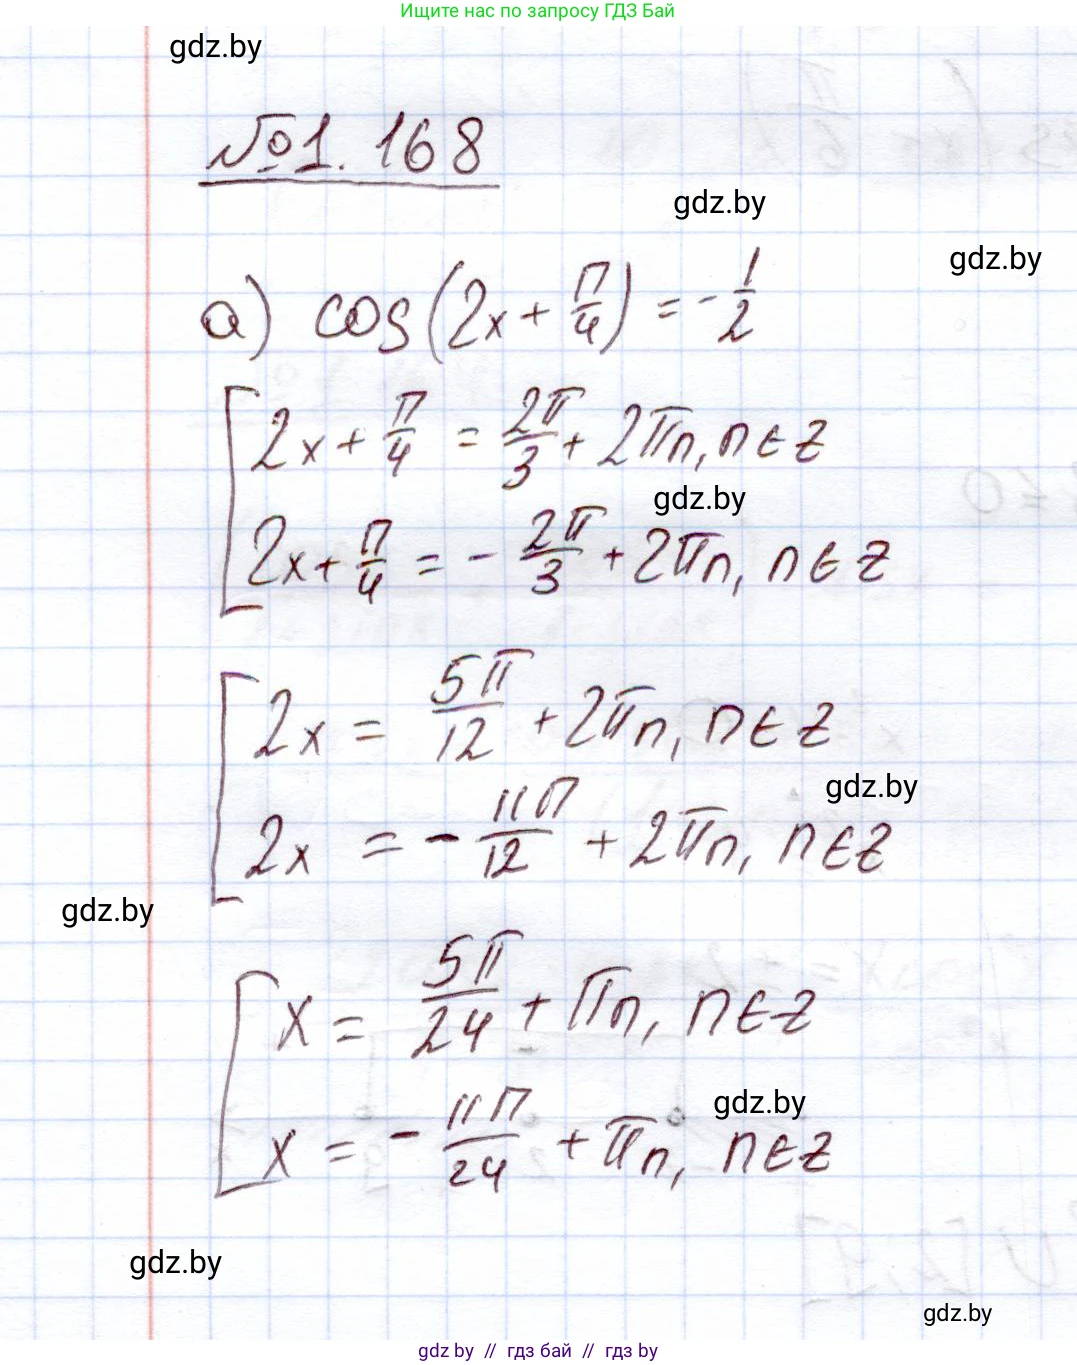 Ищите нас по запросу ГДЗ Бай
gdz.by
№1.168
gdz.by
gdz.by
а) cos(2x + π/4) = -1/2
2x + π/4 = 2π/3 + 2πn, n ∈ Z
gdz.by
2x + π/4 = - 2π/3 + 2πn, n ∈ Z
2x = 5π/12 + 2πn, n ∈ Z
gdz.by
2x = - 11π/12 + 2πn, n ∈ Z
gdz.by
x = 5π/24 + πn, n ∈ Z
gdz.by
x = - 11π/24 + πn, n ∈ Z
gdz.by
gdz.by
gdz by // гдз бай // гдз by